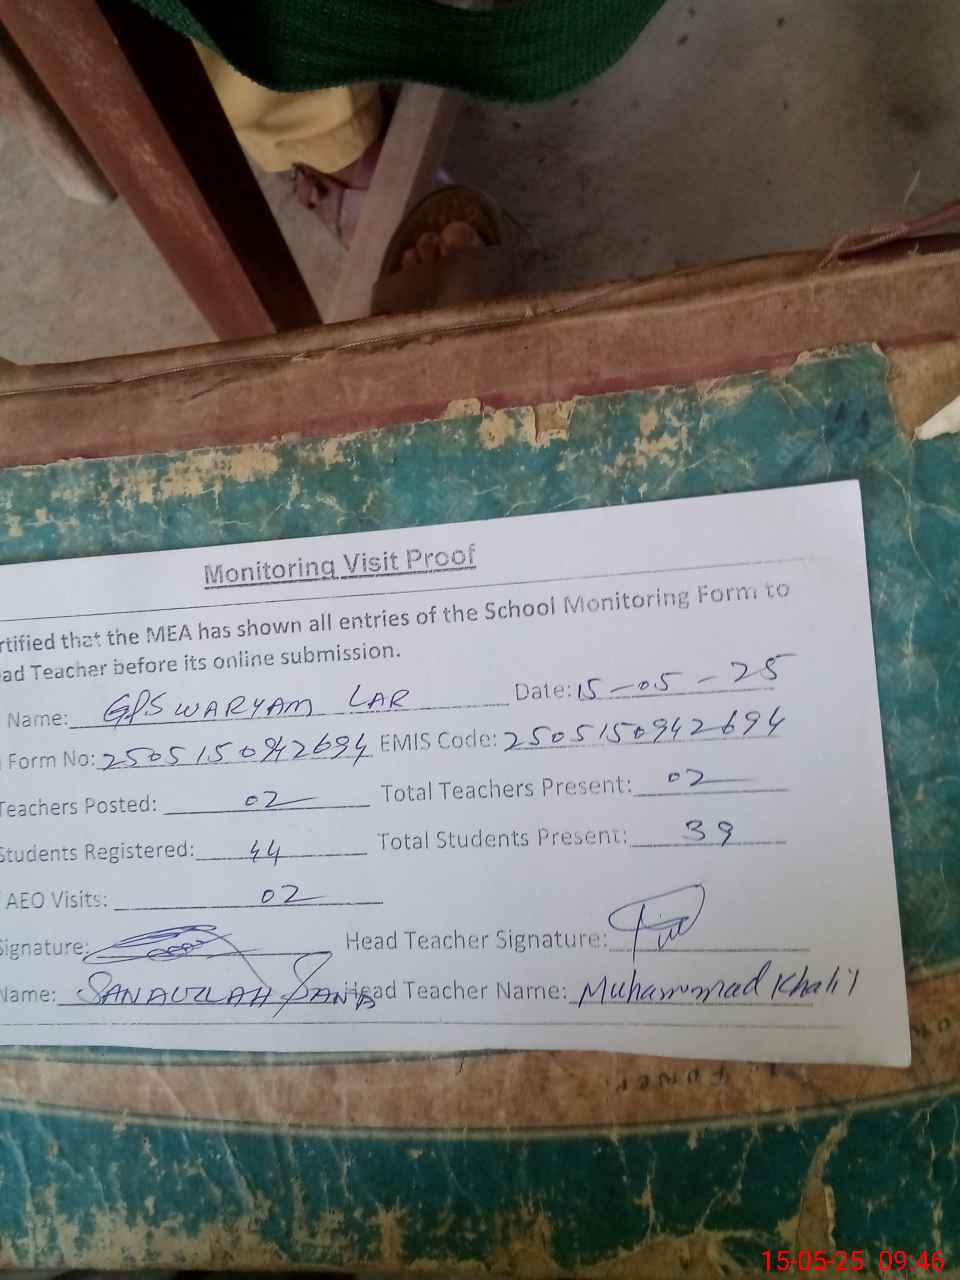 Monitoring Visit Proof
rtified that the MEA has shown all entries of the School Monitoring Form to
ad Teacher before its online submission.
Name: GPS WARYAM LAR Date: 15-05-25
Form No: 2505150942694 EMIS Code: 2505150942694
Teachers Posted: 02 Total Teachers Present: 02
Students Registered: 44 Total Students Present: 39
AEO Visits: 02
Signature: Head Teacher Signature:
Name: SANAULLAH Head Teacher Name: Muhammad Khalil
15-05-25 09:46